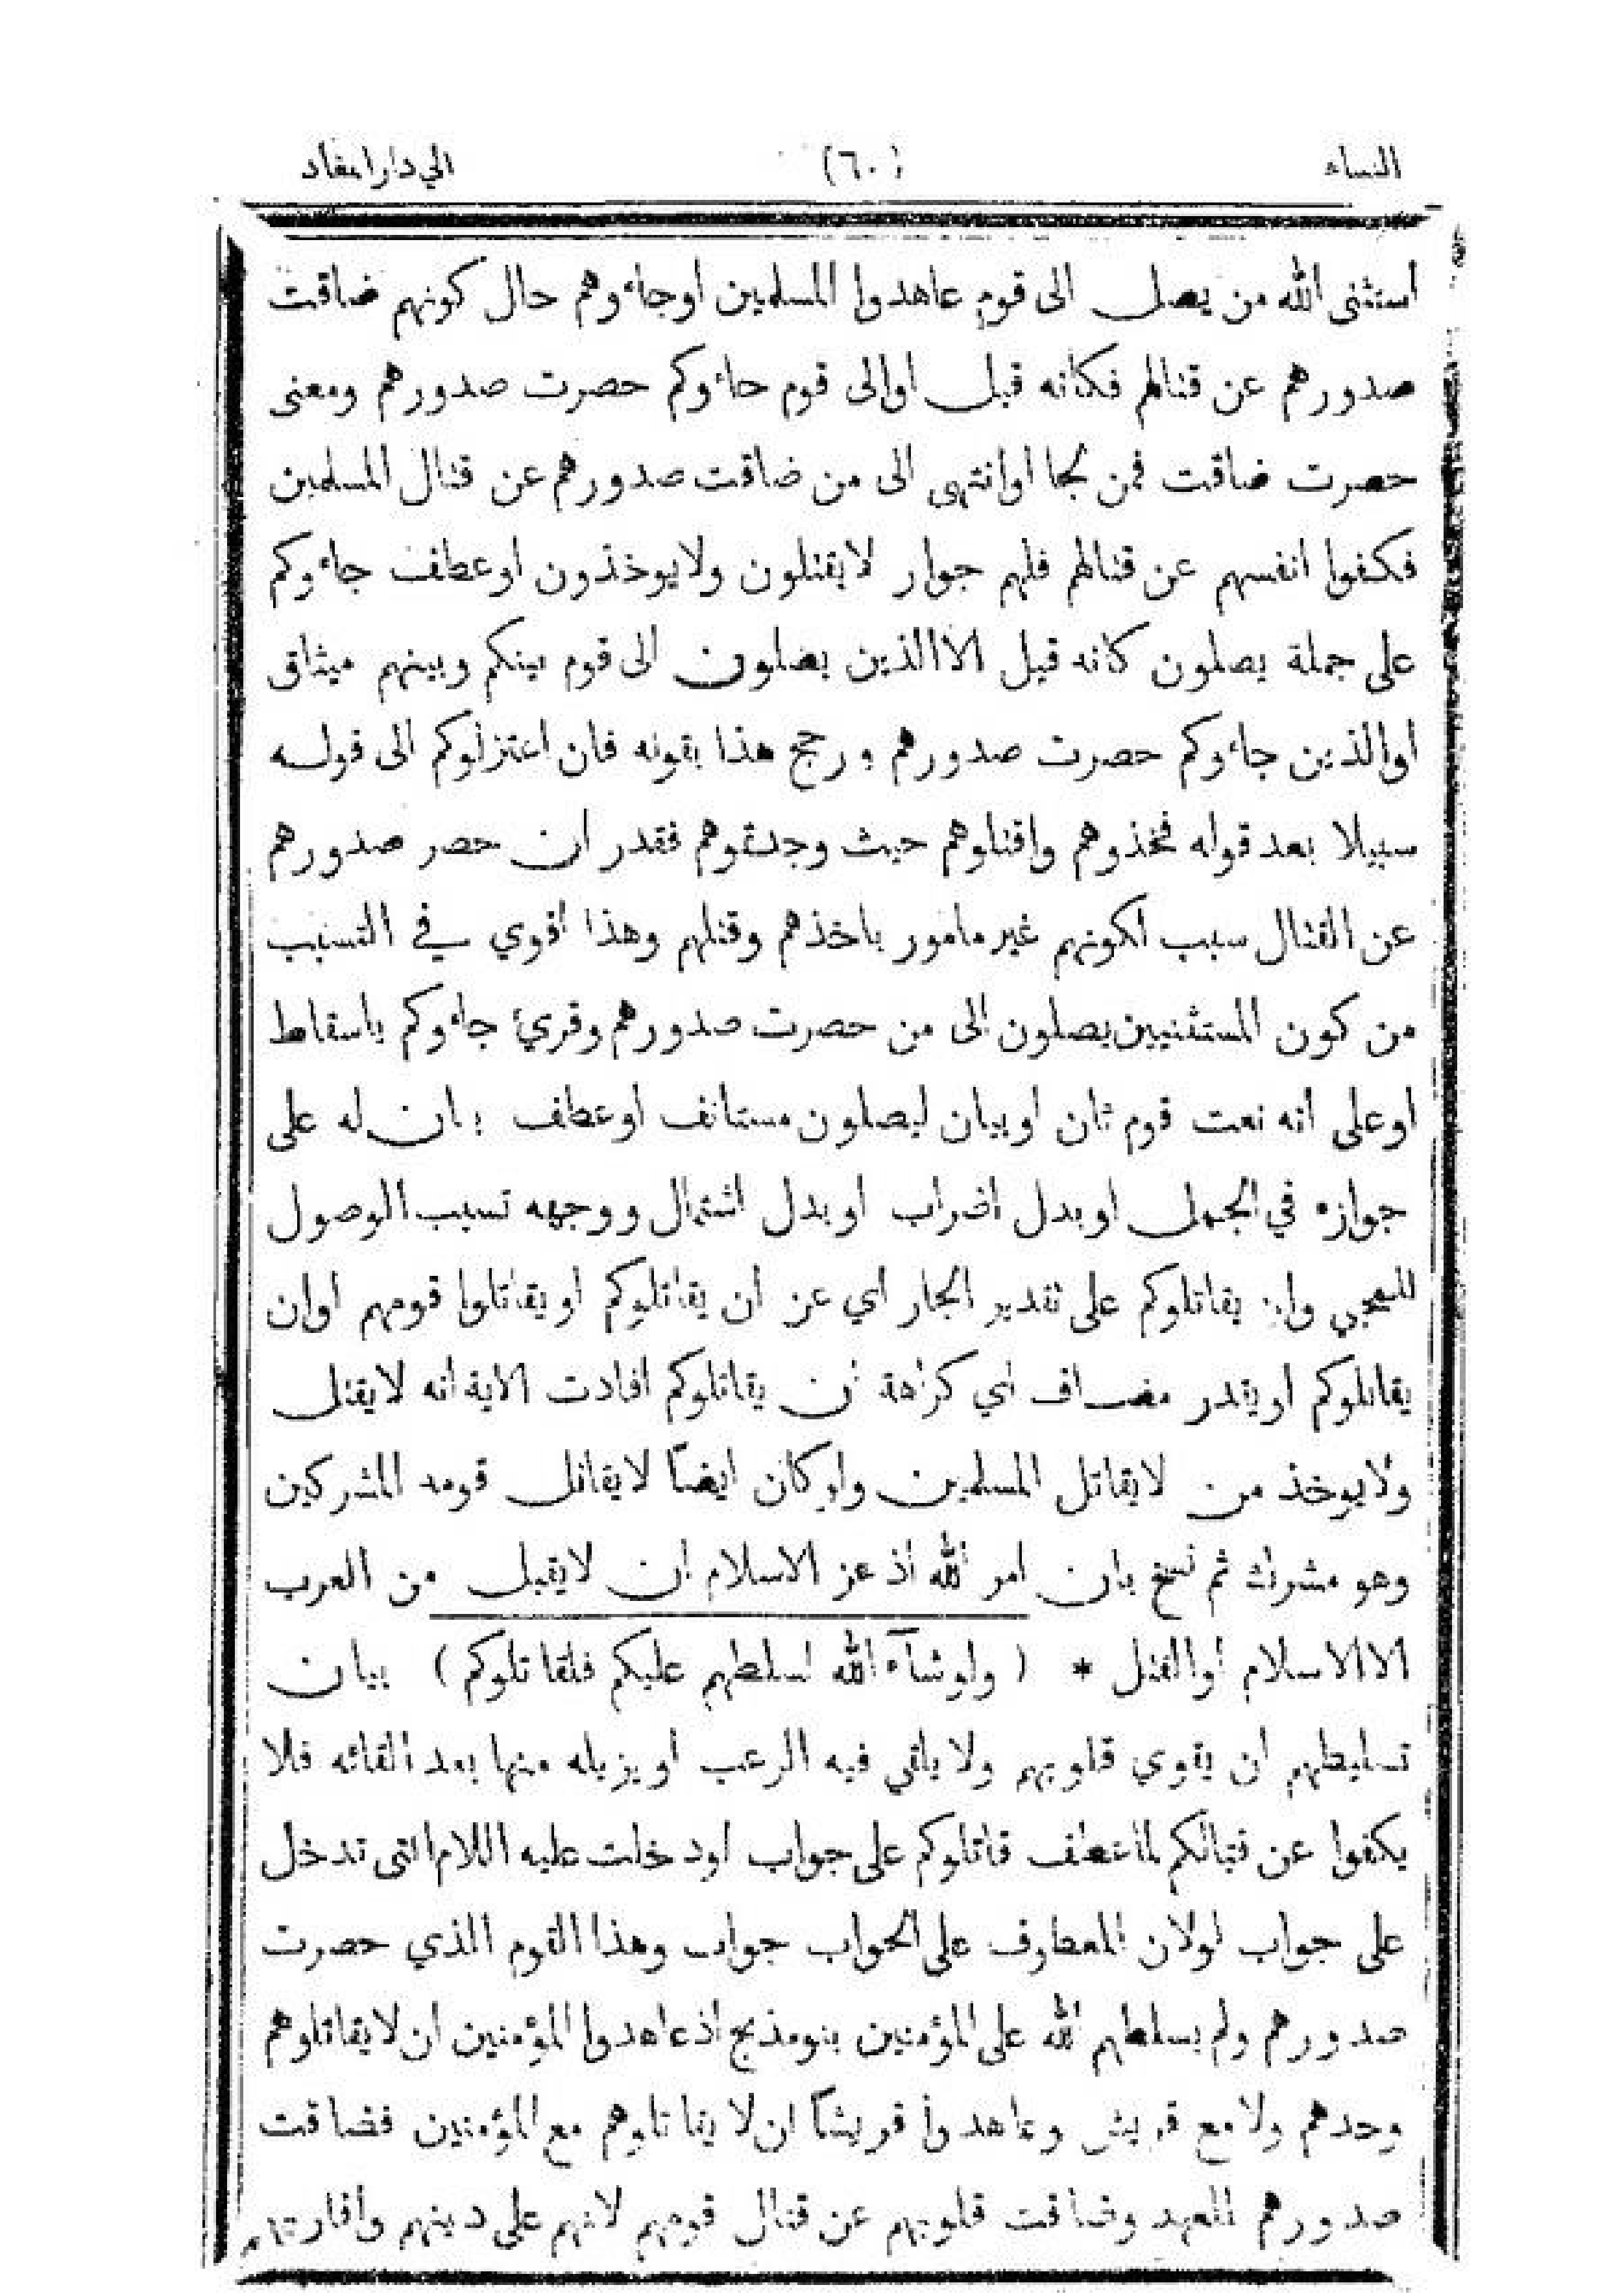 النساء (٦٠) الي دار المعاد
استثنى الله من يصل الى قوم عاهدوا المسلمين اوجاءوهم حال كونهم ضاقت
صدورهم عن قتالهم فكانه قبل اوالى قوم جاءوكم حصرت صدورهم ومعنى
حصرت ضاقت فمن نجا اوانتهى الى من ضاقت صدورهم عن قتال المسلمين
فكفوا انفسهم عن قتالهم فلهم جوار لايقتلون ولايوخذون اوعطف جاءوكم
على جملة يصلون كانه قيل الاالذين يصلون الى قوم بينكم وبينهم ميثاق
اوالذين جاءوكم حصرت صدورهم ورجح هذا بقوله فان اعتزلوكم الى قوله
سبيلا بعد قوله فخذوهم واقتلوهم حيث وجدتموهم فقدر ان حصر صدورهم
عن القتال سبب لكونهم غير مامور باخذهم وقتلهم وهذا اقوي في التسبب
من كون المستثنيين يصلون الى من حصرت صدورهم وقريء جاءوكم باسقاط
اوعلى انه نعت قوم ثان اوبيان ليصلون مستانف اوعطف بيان له على
جوازه في الجمل اوبدل اضراب اوبدل اشتمال ووجهه تسبب الوصول
للمجي وان يقاتلوكم على تقدير الجار اي عن ان يقاتلوكم اويقاتلوا قومهم اوان
يقاتلوكم اويقدر مضاف اي كراهة ان يقاتلوكم افادت الاية انه لايقتل
ولايوخذ من لايقاتل المسلمين ولوكان ايضًا لايقاتل قومه المشركين
وهو مشرك ثم نسخ بان امر الله اذ عز الاسلام ان لايقبل من العرب
الاالاسلام اوالقتل * ( ولوشآء الله لسلطهم عليكم فلقاتلوكم ) بيان
تسليطهم ان يقوي قلوبهم ولايلقي فيه الرعب اويزيله منها بعد القائه فلا
يكفوا عن قتالكم لماعطف قاتلوكم على جواب لودخلت عليه اللام التى تدخل
على جواب لولان المعطوف على الجواب جواب وهذا القوم الذي حصرت
صدورهم ولم يسلطهم الله على المؤمنين بنومذحج اذعاهدوا المؤمنين ان لايقاتلوهم
وحدهم ولامع قريش وعاهدوا قريشًا ان لايقاتلوهم مع المؤمنين فضاقت
صدورهم للعهد وضاقت قلوبهم عن قتال قومهم لانهم على دينهم واقاربهم